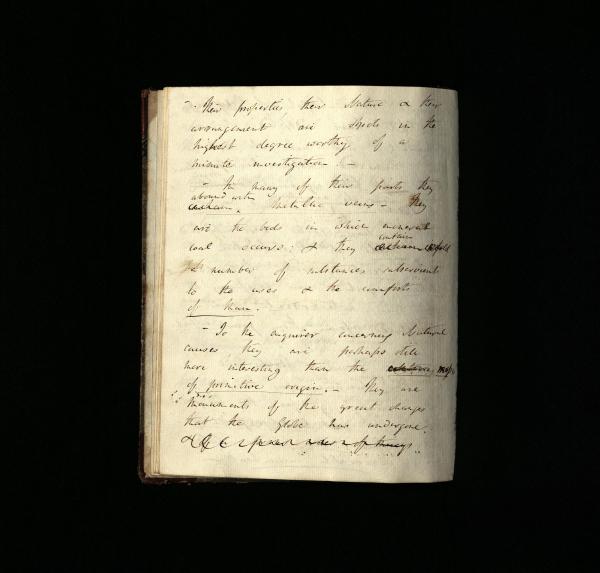 - Their properties, their Nature & their
arrangement are objects in the
highest degree worthy of a
minute investigation. -
- In many of their parts they
abound with
metallic veins - They
are the beds in which mineral
coal occurs: & they contain
number of substances subservient
to the uses & the comforts
of Man.
- To the enquirer concerning Natural
causes, they are perhaps still
more interesting than the
of primitive origin. - They are
monuments of the great changes
that the Globe has undergone.
&